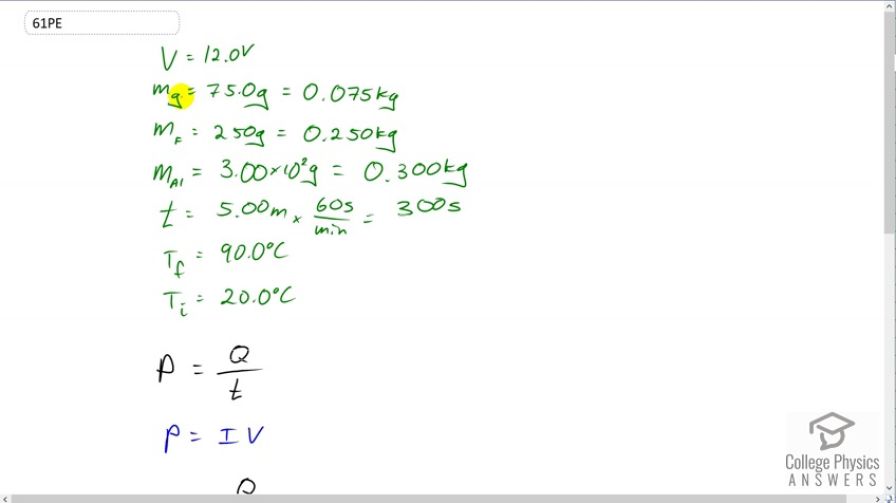 61PE
V = 12.0V
m_g = 75.0g = 0.075kg
m_F = 250g = 0.250kg
m_Al = 3.00×10²g = 0.300kg
t = 5.00m × 60s/min = 300s
T_f = 90.0°C
T_i = 20.0°C
P = Q/t
P = IV
College Physics
ANSWERS